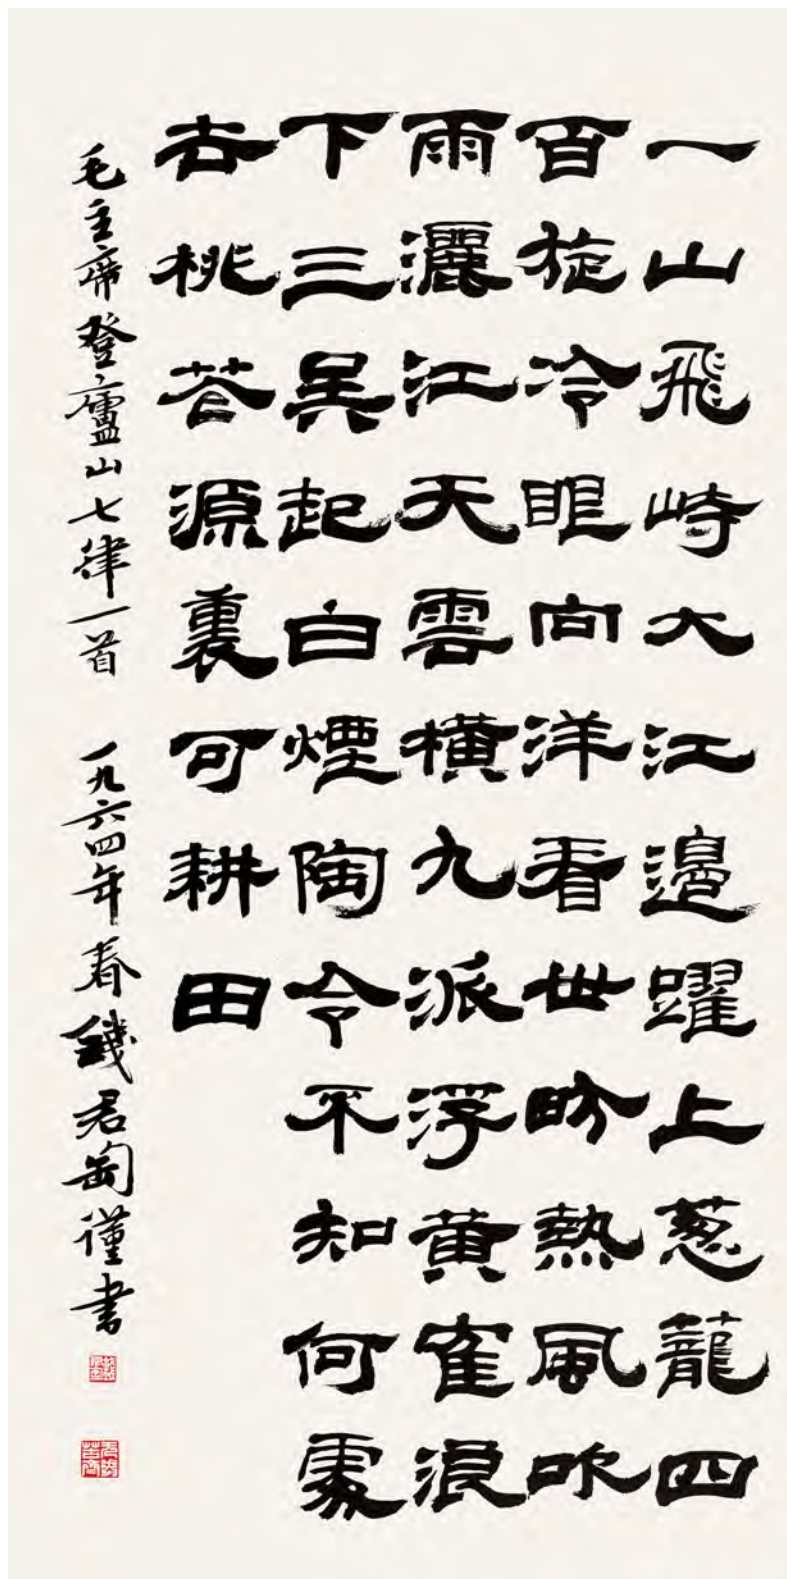 一山飛峙大江邊躍上葱蘢四
百旋冷眼向洋看世昐熱風吹
雨灑江天雲橫九派浮黄隺浪
下三吴起白煙陶令不知何處
去桃芲源裏可耕田
毛主席登廬山七律一首 一九六四年春錢君匋謹書